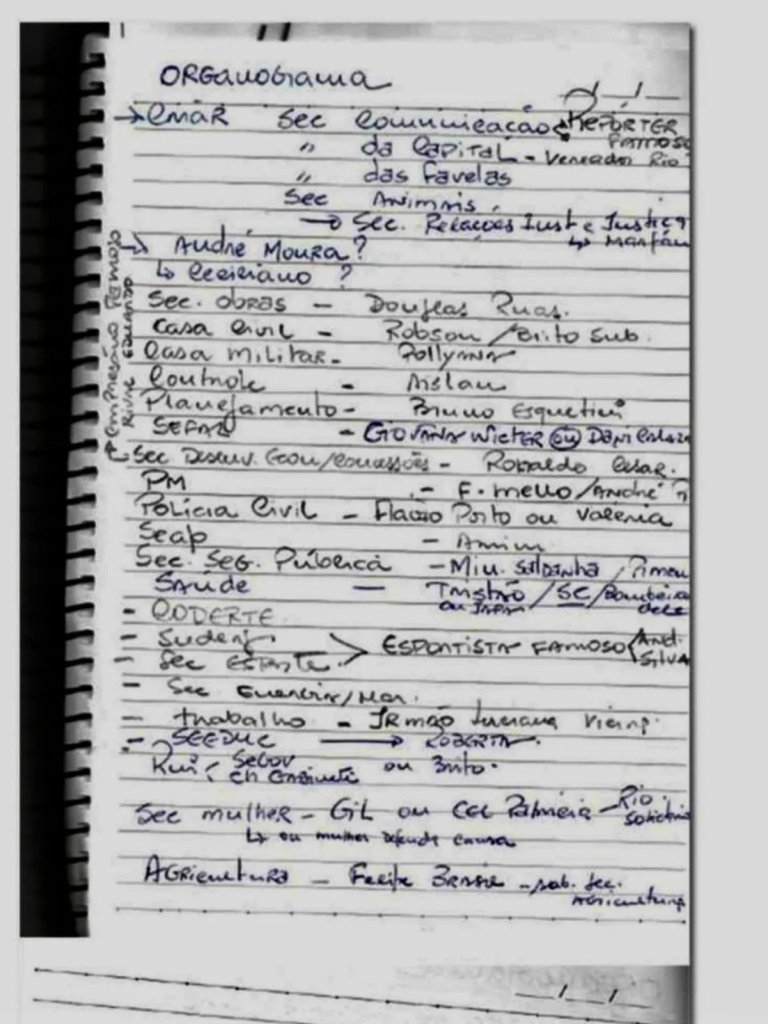 ORGANOGRAMA
→ CRIAR Sec Comunicação → REPÓRTER FAMOSO
" da Capital - Vereador Rio?
" das favelas
Sec Animais.
→ Sec. Relações Inst e Justiça
↳ MARFAN
→ André Moura?
↳ Ceciliano ?
EMPRESÁRIO FAMOSO
EDUARDO
Sec. obras - Douglas Ruas.
Casa Civil - Robson / Brito Sub.
Casa Militar - Pollyana
Controle - Aislan
Planejamento - Bruno
SEFAZ - GIOVANA ou Dani
Sec Desenv. Econ/Concessões - Ronaldo Cesar.
PM - F. Mello/André ?
Polícia Civil - Flavio Porto ou Valeria
Seap - Amim
Sec. Seg. Pública - Min. Saldanha /
Saúde - Tristão / SC / Bombeiro
ou JAPA dele
- CODERTE
- Suderj
- Sec ESPORTE. > ESPORTISTA FAMOSO (AND. SILVA
- Sec Energia/Mar.
- trabalho - IRMÃO Luciana
- SEEDUC → ROBERTA.
Rui < SEGOV ou Brito.
Ch GABINETE
Sec mulher - Gil ou Cel Palmeira - Rio Solidário
↳ ou mulher defende causa
AGRICULTURA - Felipe BRASIL - sub. sec.
AGRICULTURA